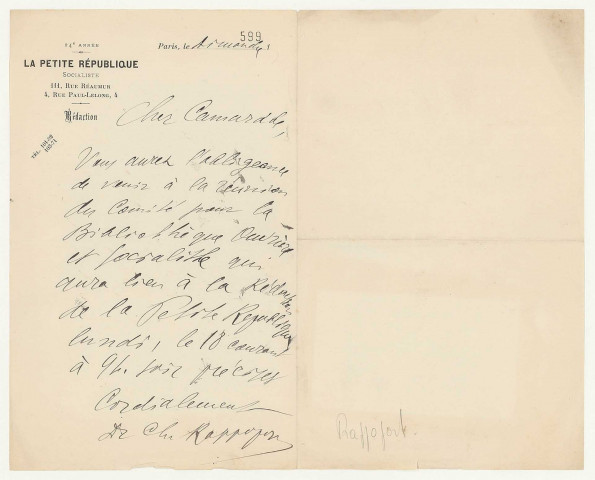 24e ANNÉE
LA PETITE RÉPUBLIQUE
SOCIALISTE
111, RUE RÉAUMUR
4, RUE PAUL-LELONG, 4
Rédaction
599
Paris, le dimanche 1
Cher Camarade,
Vous aurez l'obligeance
de venir à la réunion
du Comité pour la
Bibliothèque Ouvrière
et Socialiste qui
aura lieu à la Rédaction
de la Petite République
lundi, le 18 courant
à 9h. soir précises
Cordialement
Dr Ch. Rappoport
Rappoport.